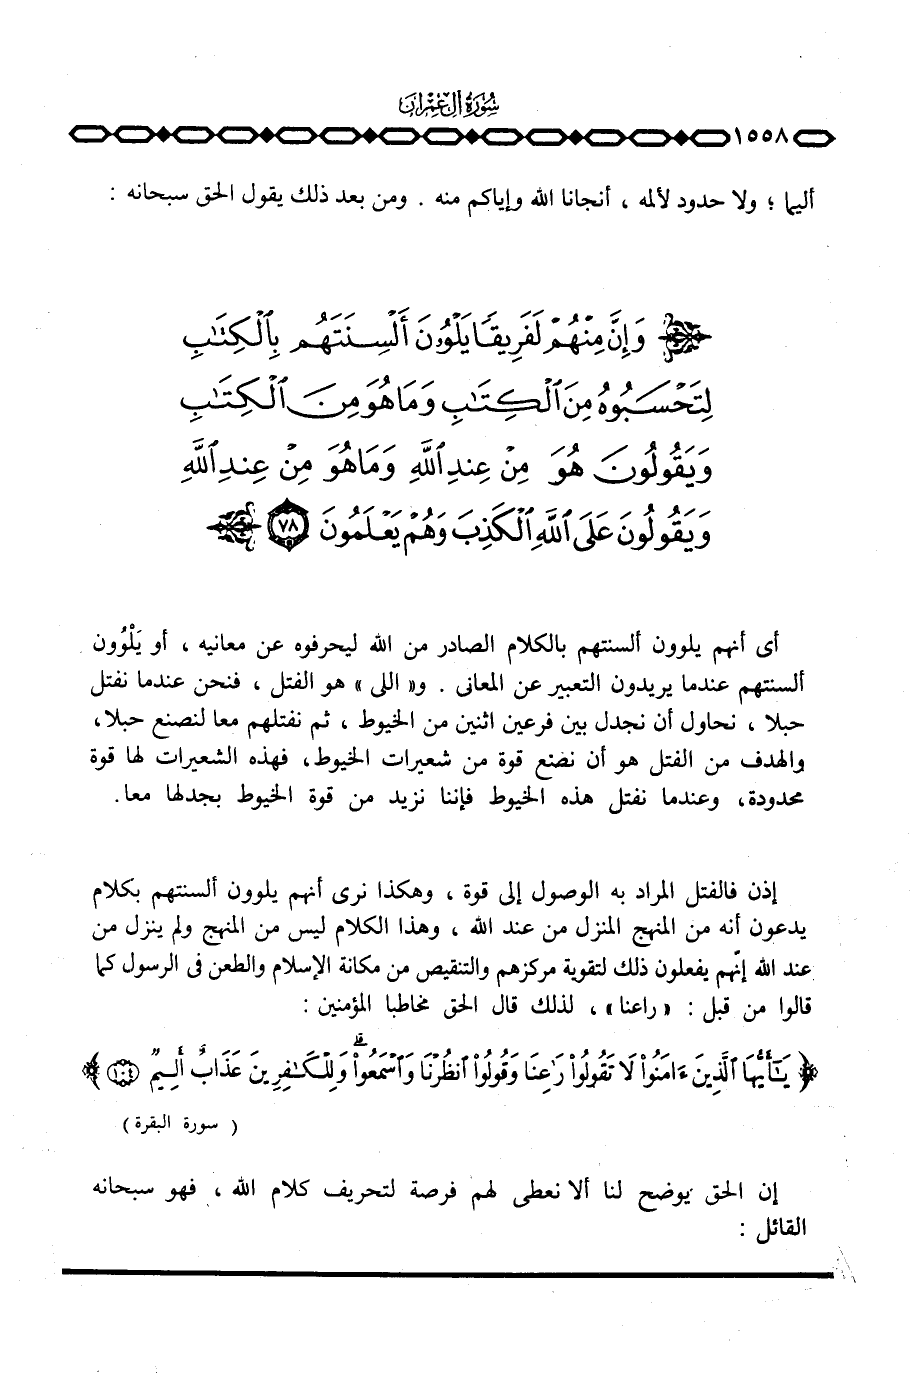 سُورَةُ آلِ عِمْرَانَ
١٥٥٨
أليما ؛ ولا حدود لألمه ، أنجانا الله وإياكم منه . ومن بعد ذلك يقول الحق سبحانه :
وَإِنَّ مِنْهُمْ لَفَرِيقًا يَلْوُۥنَ أَلْسِنَتَهُم بِٱلْكِتَٰبِ
لِتَحْسَبُوهُ مِنَ ٱلْكِتَٰبِ وَمَا هُوَ مِنَ ٱلْكِتَٰبِ
وَيَقُولُونَ هُوَ مِنْ عِندِ ٱللَّهِ وَمَا هُوَ مِنْ عِندِ ٱللَّهِ
وَيَقُولُونَ عَلَى ٱللَّهِ ٱلْكَذِبَ وَهُمْ يَعْلَمُونَ ٧٨
أى أنهم يلوون ألسنتهم بالكلام الصادر من الله ليحرفوه عن معانيه ، أو يَلْوُون
ألسنتهم عندما يريدون التعبير عن المعانى . و« اللى » هو الفتل ، فنحن عندما نفتل
حبلا ، نحاول أن نجدل بين فرعين اثنين من الخيوط ، ثم نفتلهم معا لنصنع حبلا،
والهدف من الفتل هو أن نضع قوة من شعيرات الخيوط، فهذه الشعيرات لها قوة
محدودة، وعندما نفتل هذه الخيوط فإننا نزيد من قوة الخيوط بجدلها معا.
إذن فالفتل المراد به الوصول إلى قوة ، وهكذا نرى أنهم يلوون ألسنتهم بكلام
يدعون أنه من المنهج المنزل من عند الله ، وهذا الكلام ليس من المنهج ولم ينزل من
عند الله إنّهم يفعلون ذلك لتقوية مركزهم والتنقيص من مكانة الإسلام والطعن فى الرسول كما
قالوا من قبل : « راعنا» ، لذلك قال الحق مخاطبا المؤمنين :
﴿ يَٰٓأَيُّهَا ٱلَّذِينَ ءَامَنُوا۟ لَا تَقُولُوا۟ رَٰعِنَا وَقُولُوا۟ ٱنظُرْنَا وَٱسْمَعُوا۟ ۗ وَلِلْكَٰفِرِينَ عَذَابٌ أَلِيمٌ ١٠٤ ﴾
( سورة البقرة )
إن الحق يوضح لنا ألا نعطى لهم فرصة لتحريف كلام الله ، فهو سبحانه
القائل :